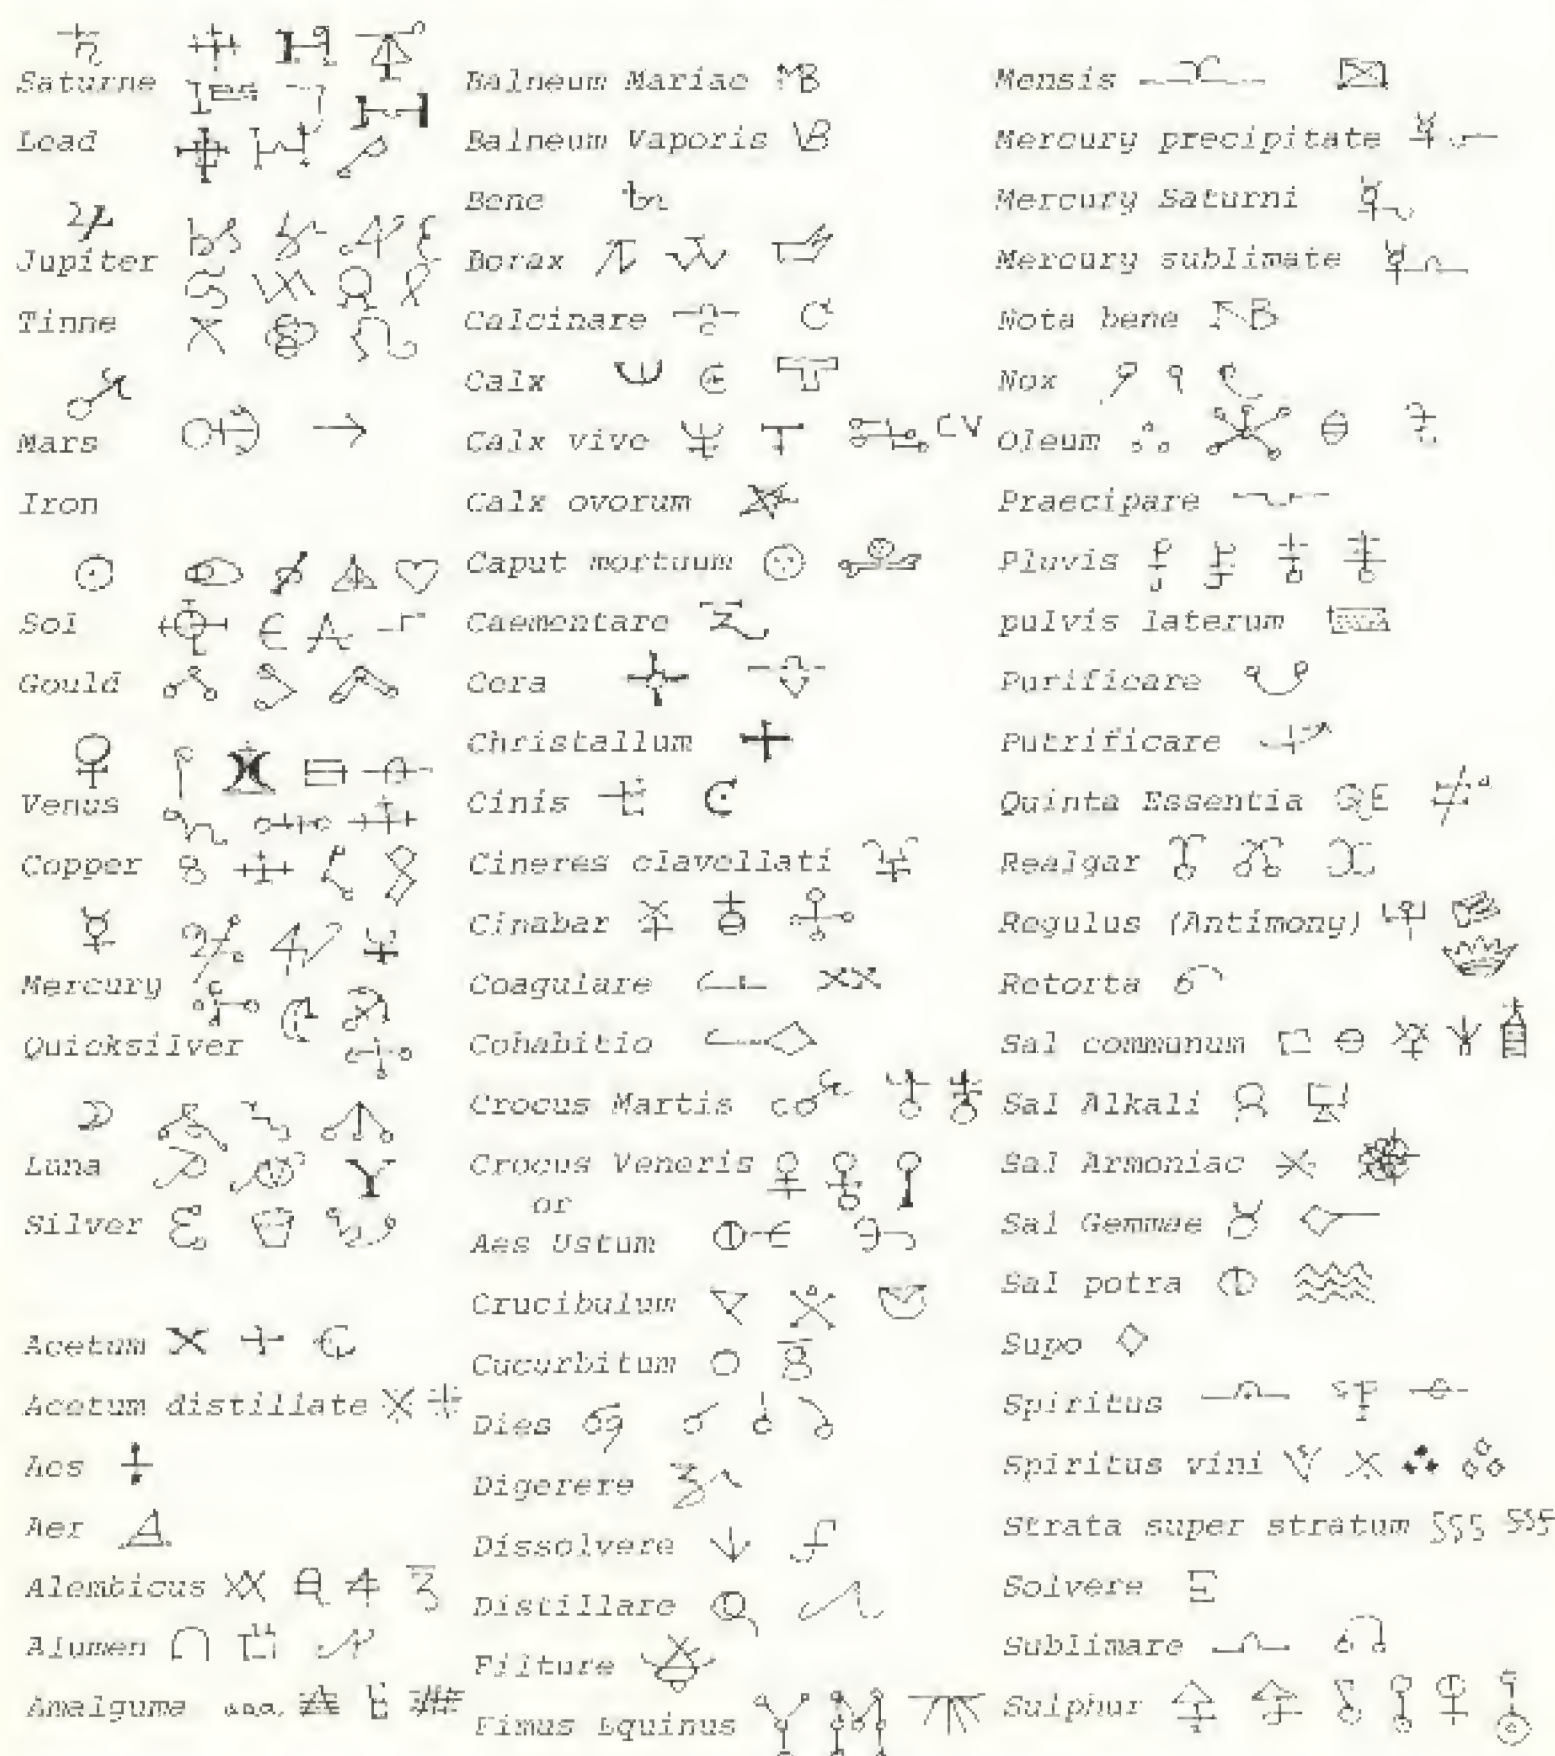 Saturne
Lead
Jupiter
Tinne
Mars
Iron
Sol
Gould
Venus
Copper
Mercury
Quicksilver
Luna
Silver
Acetum
Acetum distillate
Aes
Aer
Alembicus
Alumen
Amalguma aaa,
Balneum Mariae MB
Balneum Vaporis VB
Bene
Borax
Calcinare
Calx
Calx vive CV
Calx ovorum
Caput mortuum
Caementare
Cera
Christallum
Cinis
Cineres clavellati
Cinabar
Coagulare
Cohabitio
Crocus Martis
Crocus Veneris
or
Aes Ustum
Crucibulum
Cucurbitum
Dies
Digerere
Dissolvere
Distillare
Filture
Fimus Equinus
Mensis
Mercury precipitate
Mercury Saturni
Mercury sublimate
Nota bene NB
Nox
Oleum
Praecipare
Pluvis
pulvis laterum
Purificare
Putrificare
Quinta Essentia QE
Realgar
Regulus (Antimony)
Retorta
Sal communum
Sal Alkali
Sal Armoniac
Sal Gemmae
Sal potra
Supo
Spiritus
Spiritus vini
Strata super stratum SSS SSS
Solvere
Sublimare
Sulphur